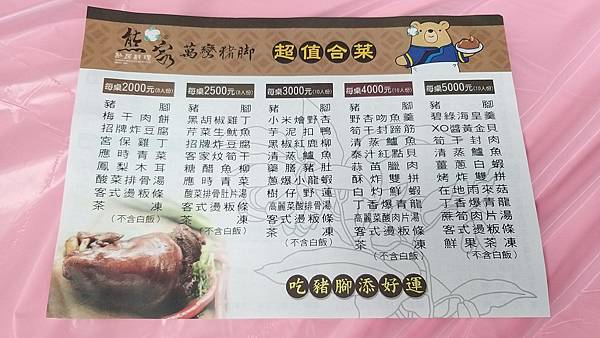 熊家 萬巒豬腳 超值合菜
客家料理
每桌2000元(8人份)
豬腳
梅干肉餅
招牌炸豆腐
宮保雞丁
應時青菜
鳳梨木耳
酸菜排骨湯
客式燙粄條
茶凍
(不含白飯)
每桌2500元(8人份)
豬腳
黑胡椒雞丁
芹菜生魷魚
招牌炸豆腐
客家炆筍干
糖醋魚柳
應時青菜
酸菜排骨肚片湯
客式燙粄條
茶凍
(不含白飯)
每桌3000元(10人份)
豬腳
小米燴野杏
芋泥扣鴨
黑椒紅鹿柳
清蒸鱸魚
藥膳豬肚
蔥爆小龍蝦
樹仔野蓮
高麗菜酸排骨湯
客式燙粄條
茶凍
(不含白飯)
每桌4000元(10人份)
豬腳
野杏吻魚羹
筍干封蹄筋
清蒸鱸魚
泰汁紅點貝
蒜苗臘肉
酥炸雙拼
白灼鮮蝦
丁香爆青龍
高麗菜酸肉片湯
客式燙粄條
茶凍
(不含白飯)
每桌5000元(10人份)
豬腳
碧綠海皇羹
XO醬黃金貝
筍干封肉
清蒸鱸魚
薑蔥白蝦
烤炸雙拼
在地雨來菇
丁香爆青龍
蔴筍肉片湯
客式燙粄條
鮮果茶凍
(不含白飯)
吃豬腳添好運